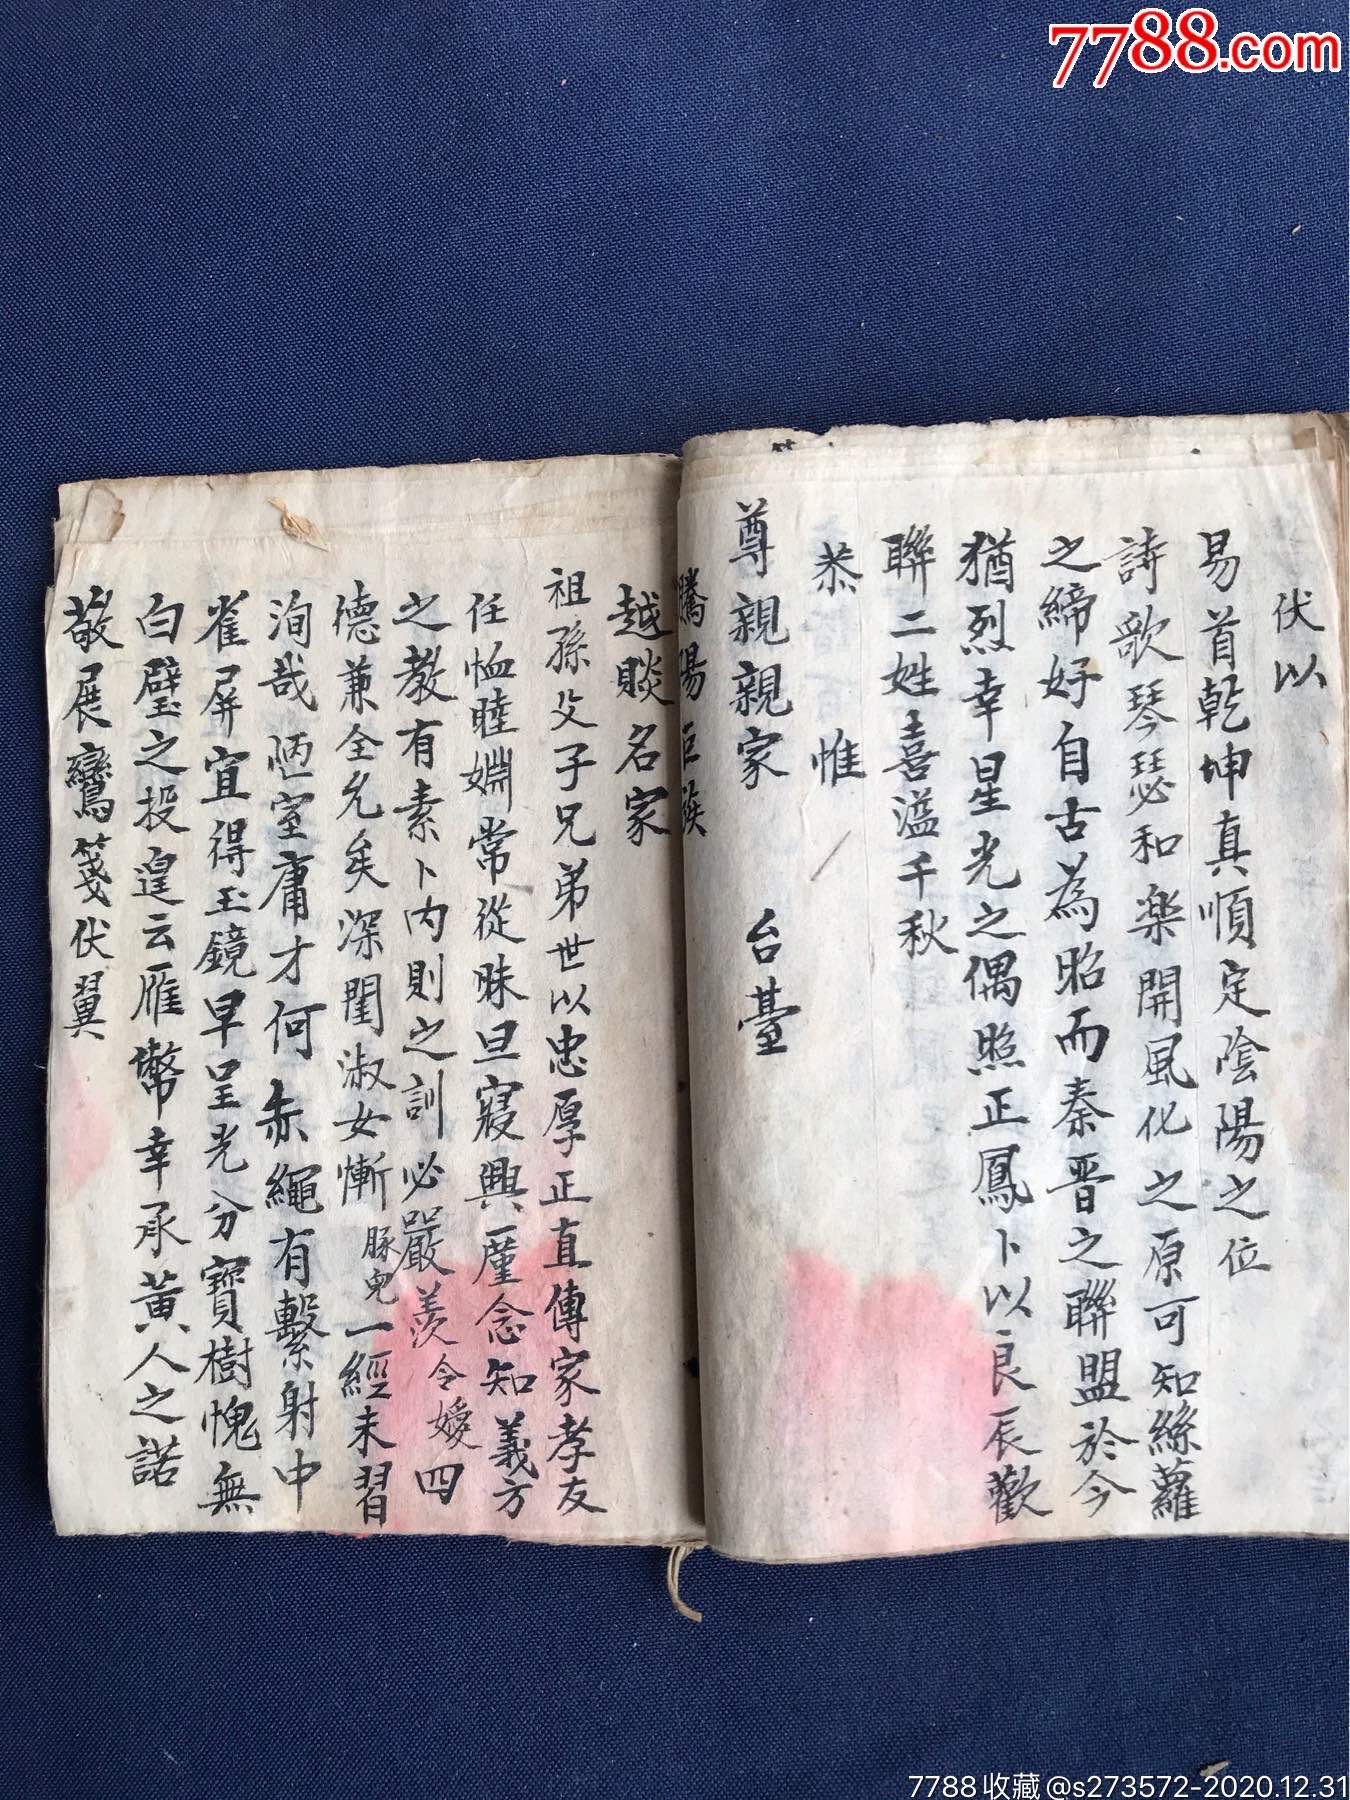 7788.com
伏以
易首乾坤真順定陰陽之位
詩歌琴瑟和樂開風化之原可知絲蘿
之締好自古為昭而秦晋之聯盟於今
猶烈幸星光之偶照正鳳卜以良辰歡
聯二姓喜溢千秋
恭惟
尊親親家 台臺
騰陽巨族
越賧名家
祖孫父子兄弟世以忠厚正直傳家孝友
任恤睦婣常從昧旦寢興厪念知義方
之教有素卜内則之訓必嚴羨令嬡四
德兼全允矣深閨淑女慚豚兒一經未習
洵哉陋室庸才何赤繩有繫射中
雀屏宜得玉鏡早呈光分寶樹愧無
白璧之投遑云雁幣幸承黄人之諾
敬展鸞箋伏翼
7788收藏@s273572-2020.12.31